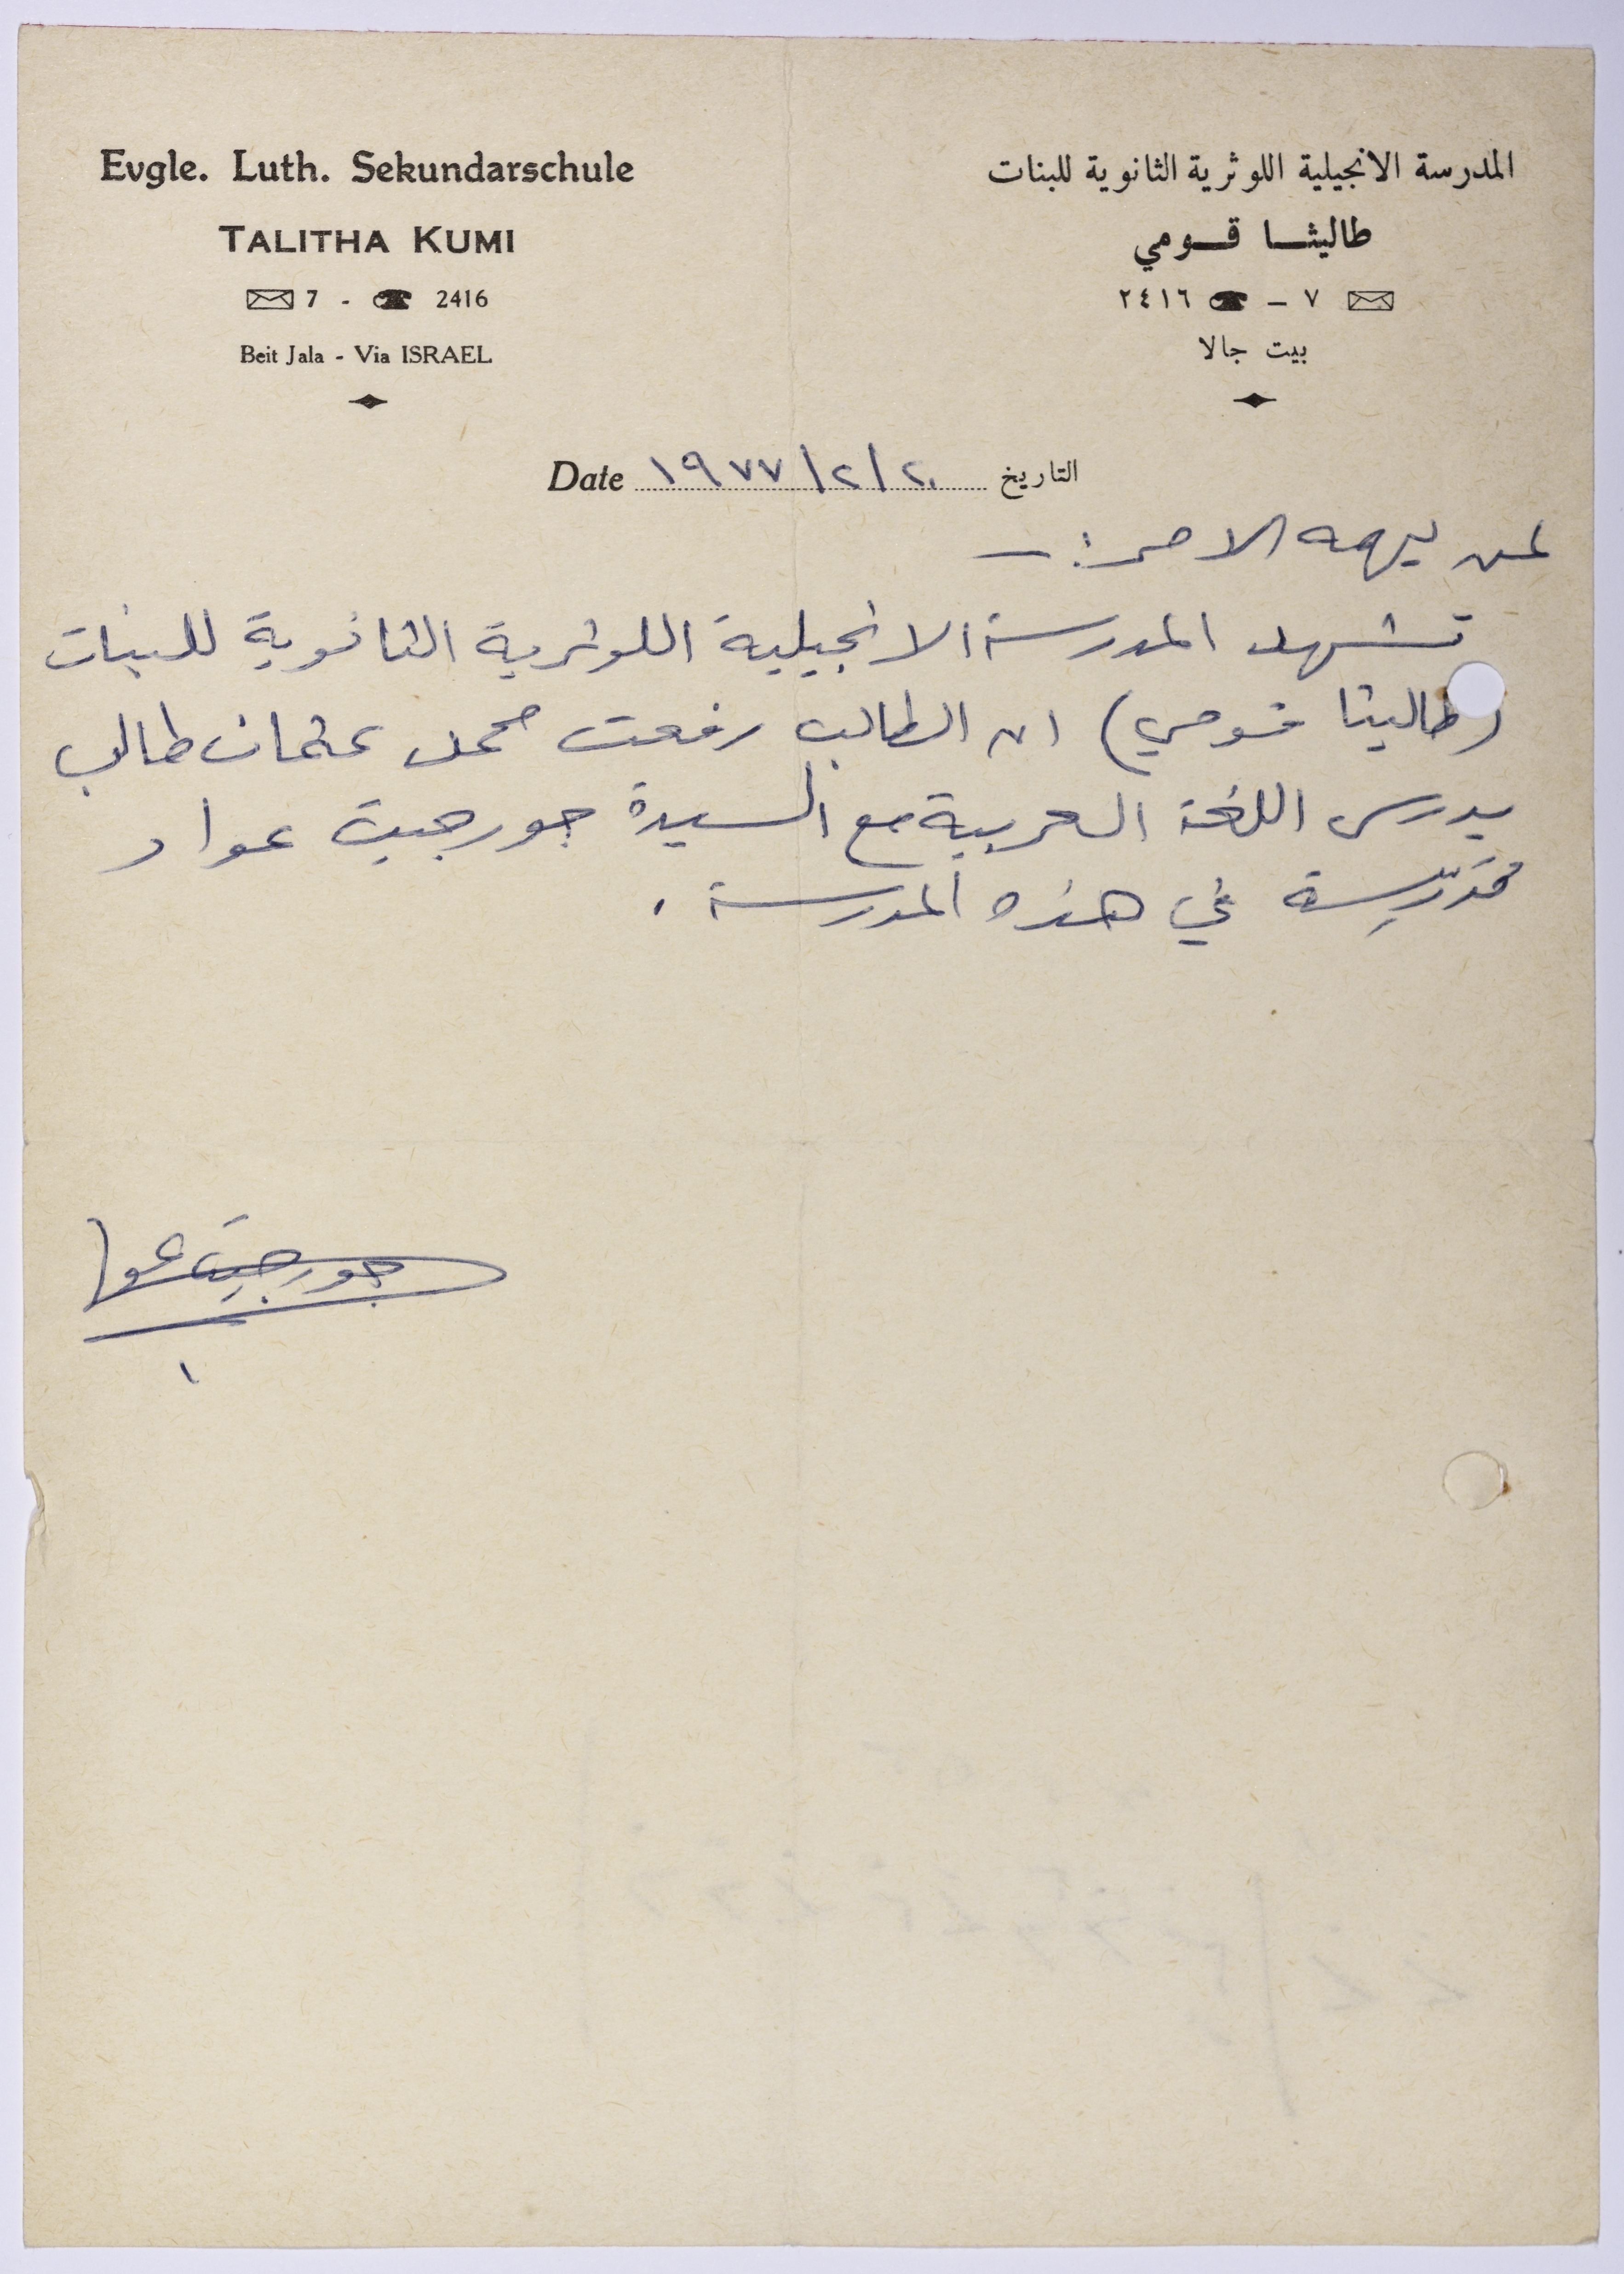 Evgle. Luth. Sekundarschule
TALITHA KUMI
7 - 2416
Beit Jala - Via ISRAEL
المدرسة الانجيلية اللوثرية الثانوية للبنات
طاليثا قومي
٧ - ٢٤١٦
بيت جالا
Date ١٩٧٧/٢/٢٠ التاريخ
لمن يهمه الامر :-
تشهد المدرسة الانجيلية اللوثرية الثانوية للبنات
(طاليثا قومي) ان الطالب رفعت محمد عثمان طالب
يدرس اللغة العربية مع السيدة جورجيت عواد
مدرّسة في هذه المدرسة .
جورجيت عواد